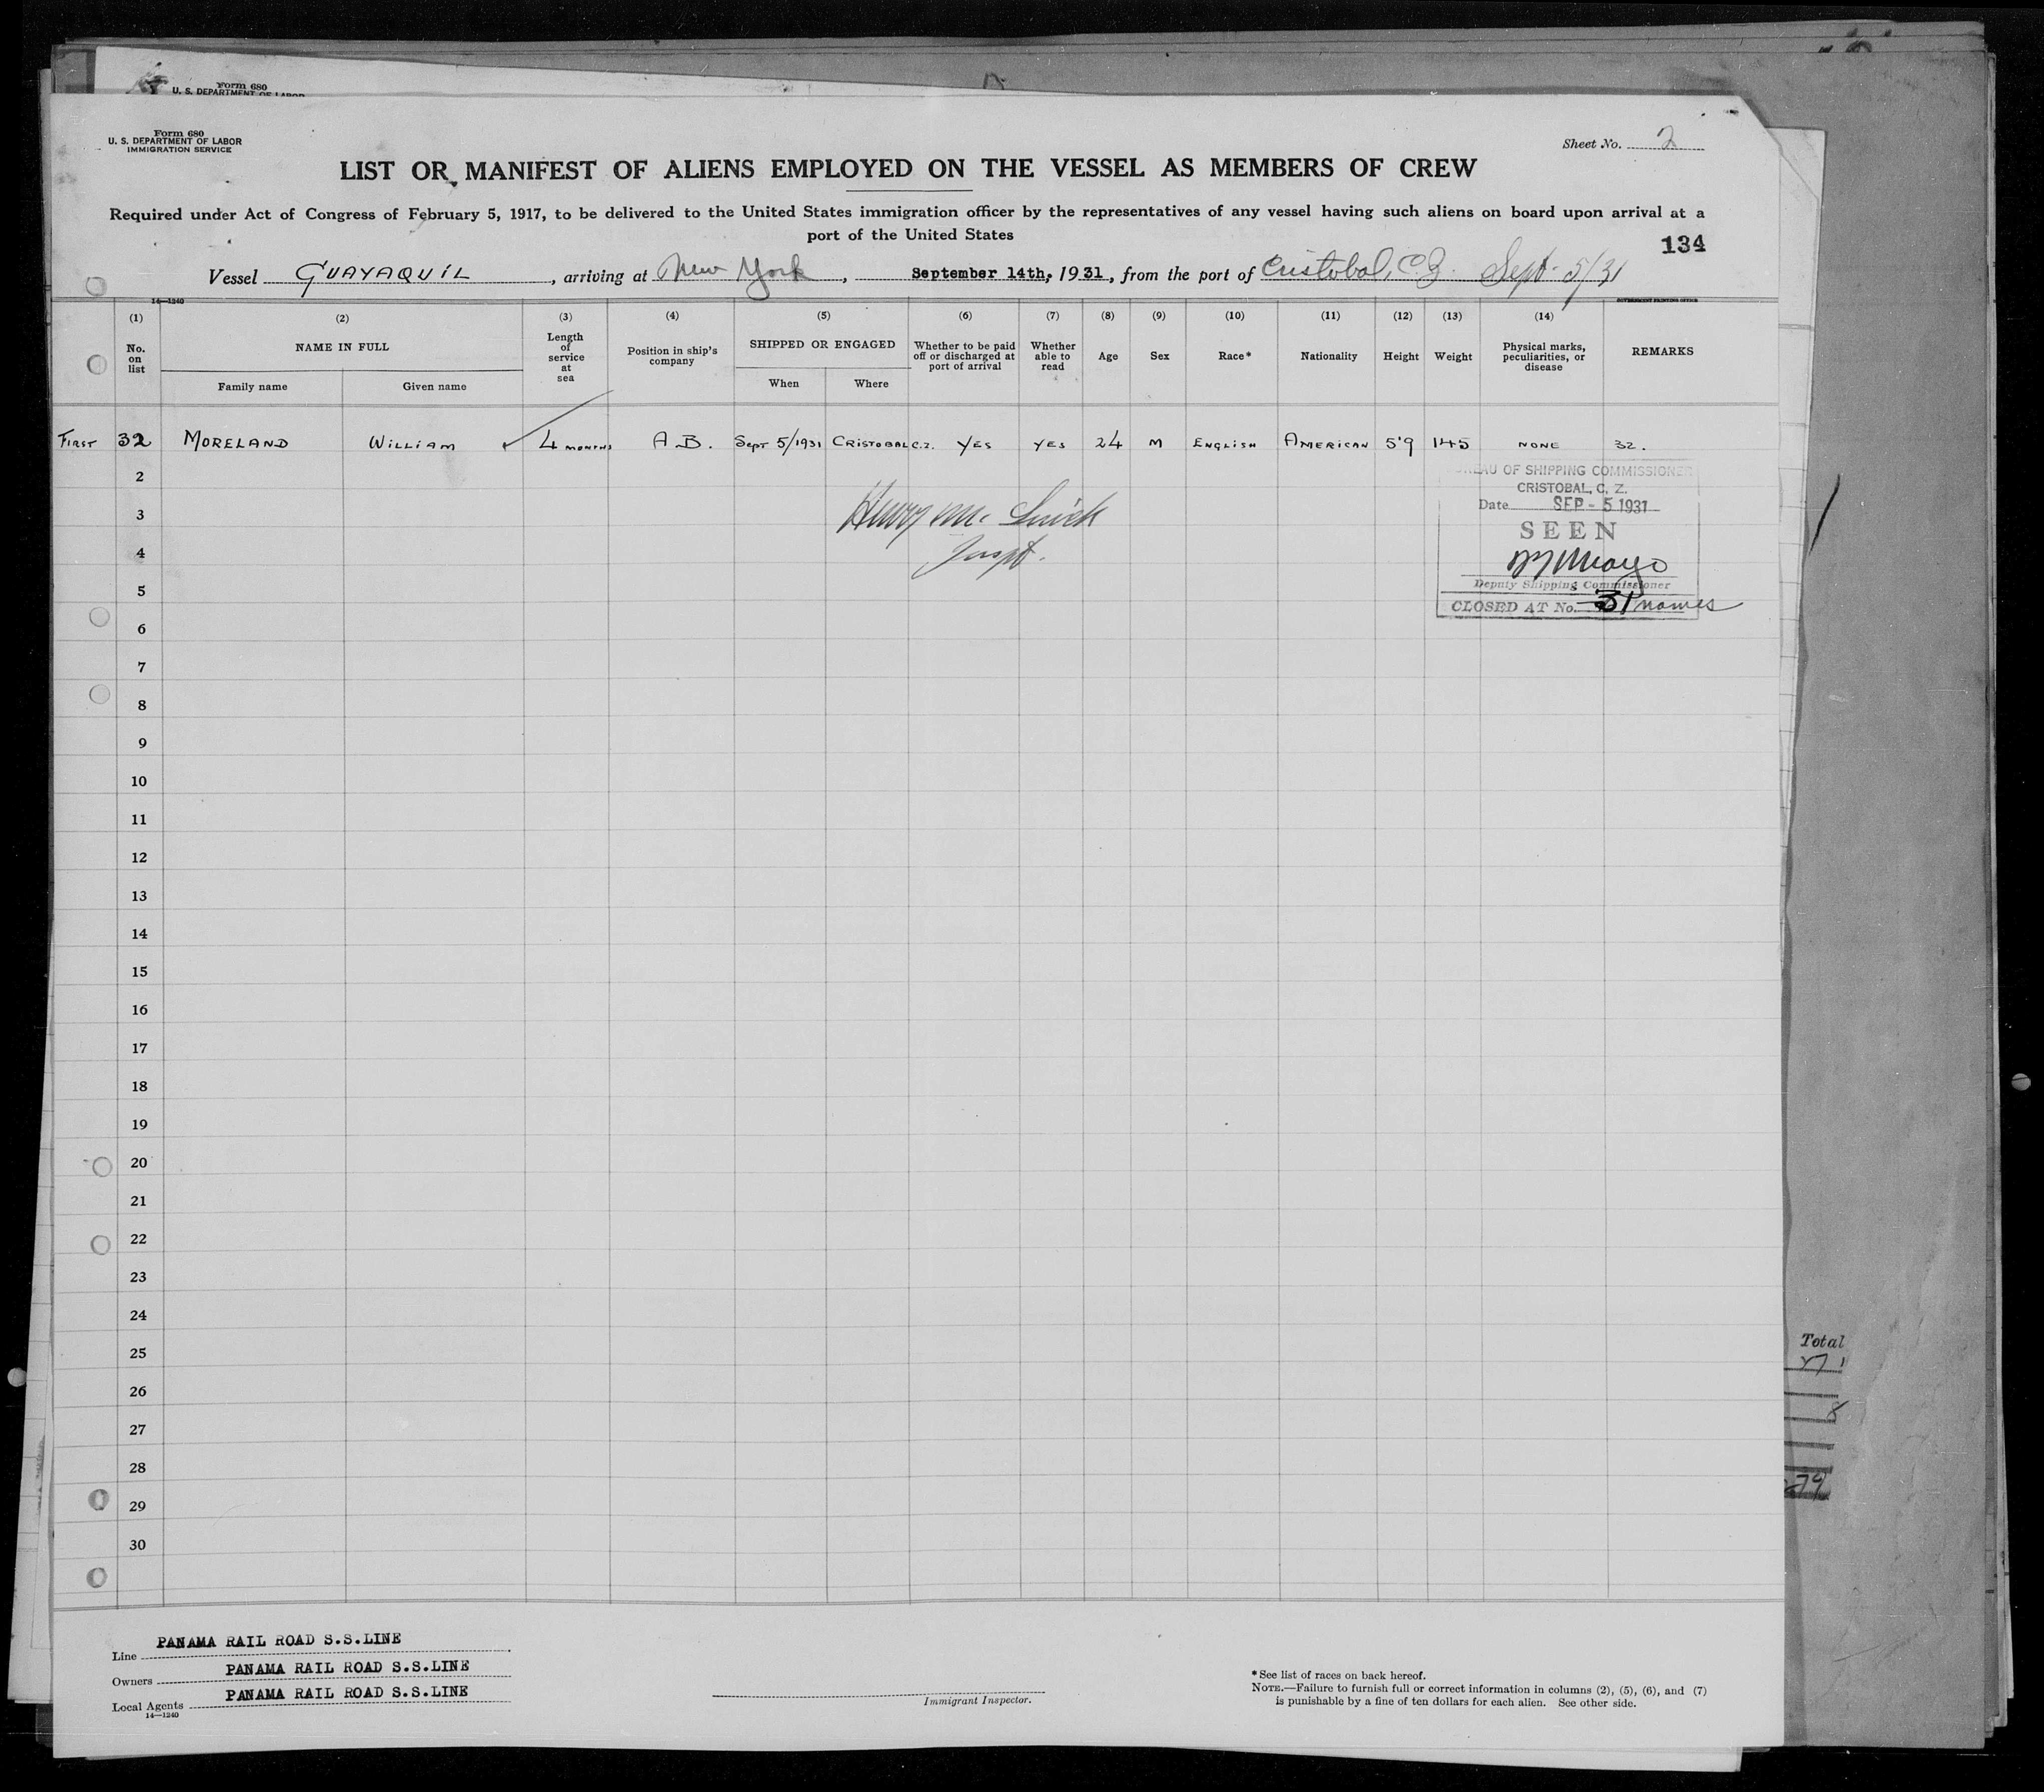 Form 680
U. S. DEPARTMENT OF LABOR
Form 680
U. S. DEPARTMENT OF LABOR
IMMIGRATION SERVICE
Sheet No. 2
LIST OR MANIFEST OF ALIENS EMPLOYED ON THE VESSEL AS MEMBERS OF CREW
Required under Act of Congress of February 5, 1917, to be delivered to the United States immigration officer by the representatives of any vessel having such aliens on board upon arrival at a
port of the United States
134
Vessel GUAYAQUIL, arriving at New York, September 14th, 1931, from the port of Cristobal, C.Z. Sept 5/31
14—1240
GOVERNMENT PRINTING OFFICE
(1) (2) (3) (4) (5) (6) (7) (8) (9) (10) (11) (12) (13) (14)
No. on list NAME IN FULL Length of service at sea Position in ship's company SHIPPED OR ENGAGED Whether to be paid off or discharged at port of arrival Whether able to read Age Sex Race* Nationality Height Weight Physical marks, peculiarities, or disease REMARKS
Family name Given name When Where
FIRST 32 MORELAND WILLIAM 4 MONTHS A.B. Sept 5/1931 CRISTOBAL C.Z. YES YES 24 M ENGLISH AMERICAN 5'9 145 NONE 32.
2
3
4
5
6
7
8
9
10
11
12
13
14
15
16
17
18
19
20
21
22
23
24
25
26
27
28
29
30
BUREAU OF SHIPPING COMMISSIONER
CRISTOBAL, C. Z.
Date SEP - 5 1931
SEEN
Deputy Shipping Commissioner
CLOSED AT No. 31 names
Henry
Inspt.
Total
79
Line PANAMA RAIL ROAD S.S.LINE
Owners PANAMA RAIL ROAD S.S.LINE
Local Agents PANAMA RAIL ROAD S.S.LINE
14—1240
Immigrant Inspector.
*See list of races on back hereof.
NOTE.—Failure to furnish full or correct information in columns (2), (5), (6), and (7)
is punishable by a fine of ten dollars for each alien. See other side.